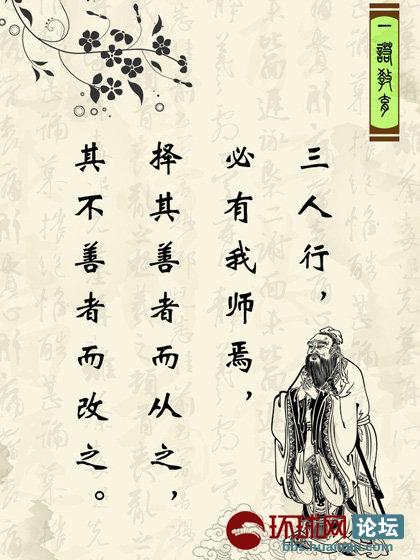 三人行，
必有我师焉，
择其善者而从之，
其不善者而改之。
环球网 论坛
bbs.huanqiu.com